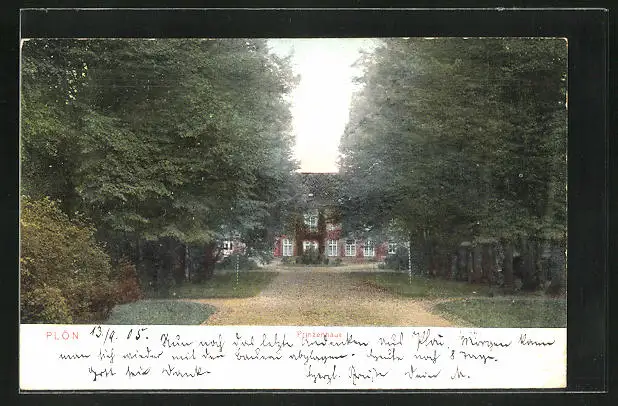 Prinzenhaus
PLÖN 13/9. 05. Nun noch das letzte Andenken aus Plön, Morgen kann
man sich wieder mit den Bauern abplagen. Heute noch 8
Gott sei Dank. Herzl. Grüße Dein M.